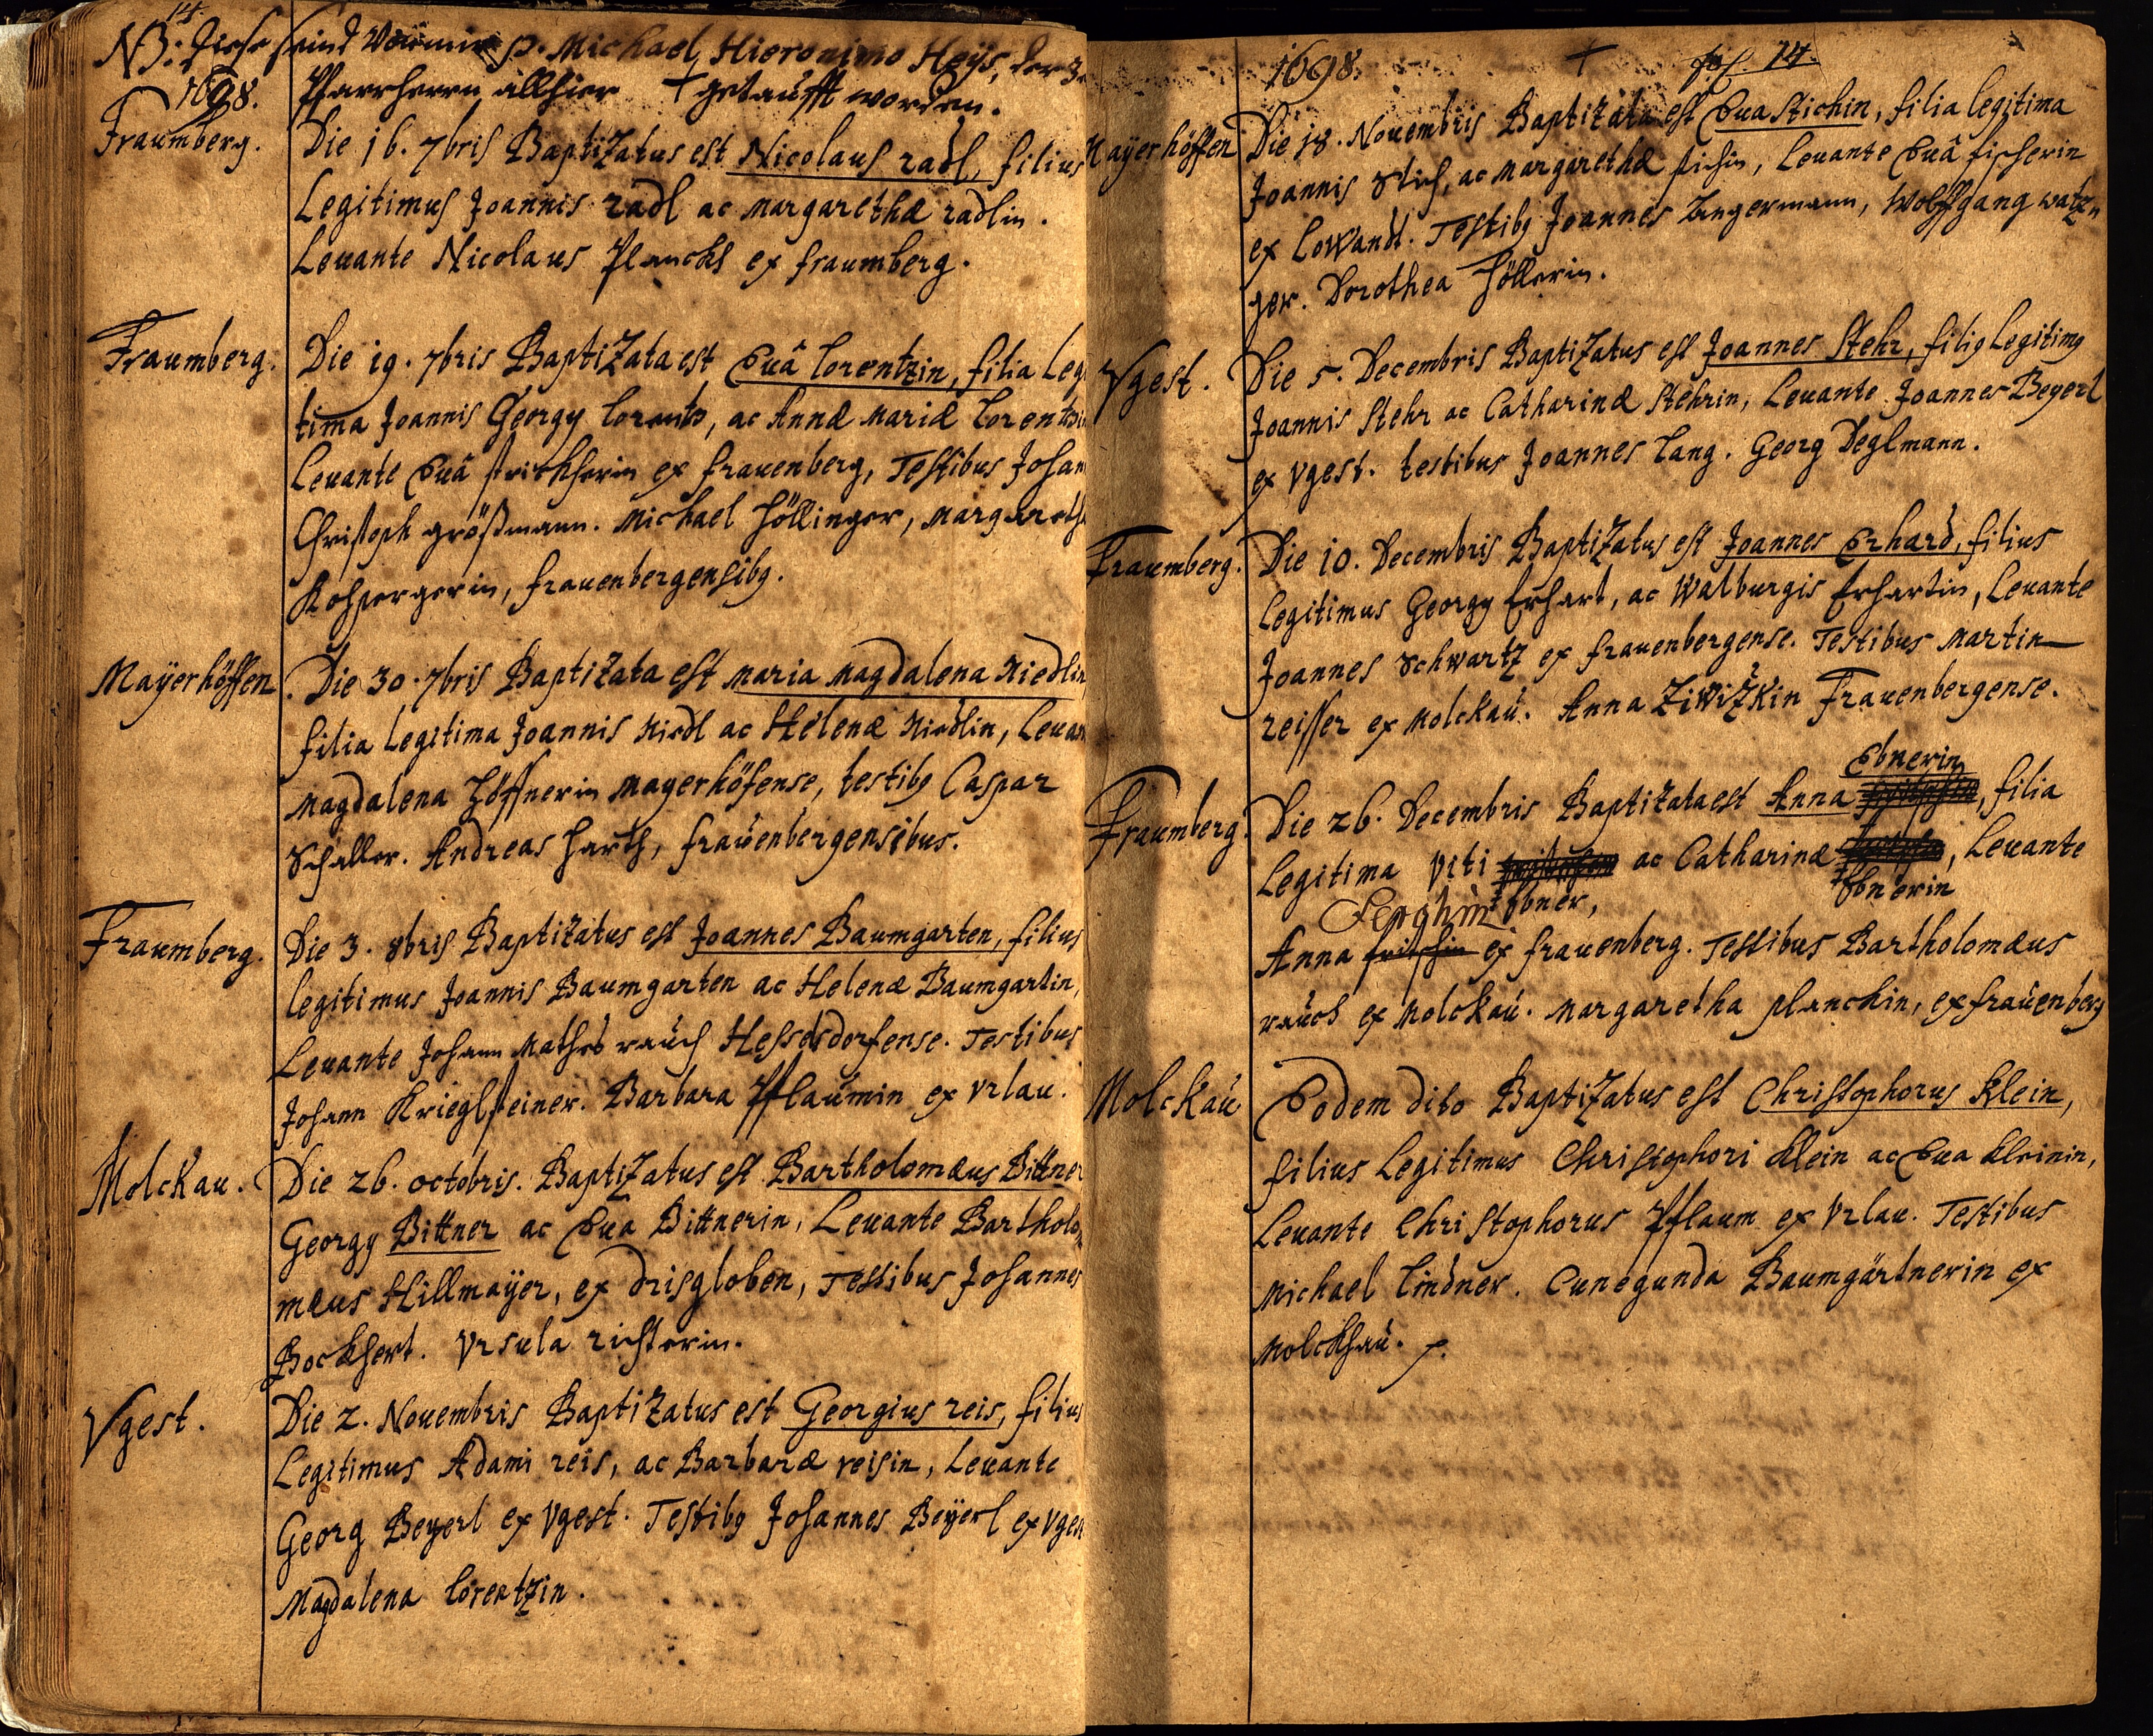 14.
NB: Diese seind von mir P. Michael Hieronimo Heÿs, der
Pfarrherrn allhier + getaufft worden.
1698.
Fraumberg.
Die 16. 7bris BaptiZatus est Nicolaus radl, filius
Legitimus Joannis radl ac Margarethæ radlin.
Leuante Nicolaus Planckh ex fraumberg.
Fraumberg.
Die 19. 7bris BaptiZata est Euâ Lorentzin, filia Leg
tima Joannis Georgy Lorentz, ac Annæ Mariæ Lorentzin
Leuante Euâ ex frauenberg, Testibus Johan
Christoph größmann. Michael Höllinger, Margareth
frauenbergensibg.
Mayerhöffen
Die 30. 7bris BaptiZata est Maria Magdalena Riedlin
filia Legitima Joannis Riedl ac Helenæ Riedlin, Leuan
Magdalena Mayerhöfense, testibg Caspar
Schaller. Andreas Harth, fraüenbergensibus.
Fraumberg.
Die 3. 8bris BaptiZatus est Joannes Baumgarten, filius
legitimus Joannis Baumgarten ac Helenæ Baumgartin,
Leuante Johann Mathes raüch Hesselsdorfense. Testibus
Johann Krieglsteiner. Barbara Pflaümin ex Vrlau.
Molckau.
Die 26. octobris. BaptiZatus est Bartholomæus Bittner
Georgy Bittner ac Eua Bittnerin, Leuante Bartholo
mæus Hillmaÿer, ex drisgloben, Testibus Johannes
Bockhert. Vrsula richterin.
Vgest.
Die 2. Nouembris BaptiZatus est Georgius reis, filius
Legitimus Adami reis, ac Barbaræ reisin, Leuante
Georg Beyerl ex Vgest. Testibg Johannes Beÿerl ex Vgest
Magdalena Lorentzin.
1698. + fol. 14.
Mayerhöffen
Die 18. Nouembris BaptiZata est Eua Stichin, filia legitima
Joannis Stich, ac Margarethæ stichin, Leuante Euâ fischerin
ex Lowandl. Testibg Joannes Zengermann, Wolffgang watzn
ger. Dorothea Höllerin.
Vgest.
Die 5. Decembris BaptiZatus est Joannes Stehr, filig Legitimg
Joannis Stehr ac Catharinæ Stehrin, Leuante Joannes Beyerl
ex Vgest. testibus Joannes Lang. Georg Deglmann.
Fraumberg.
Die 10. Decembris BaptiZatus est Joannes Erhard, filius
Legitimus Georgy Erhart, ac Walburgis Erhartin, Leuante
Joannes Schwartz ex frauenbergense. Testibus Martin
reisser ex Molckaü. Anna ZiwiZkin Frauenbergense.
Ebnerin
Fraumberg.
Die 26. Decembris BaptiZata est Anna, filia
Legitima Viti ac Catharinæ, Leuante
Ebner, Ebnerin
Anna ex frauenberg. Testibus Bartholomæus
raüch ex Molckaü. Margaretha planckin, ex fraüenberg
Molckaü
Eodem dito BaptiZatus est Christophorus Klein,
filius Legitimus Christophori Klein ac Eua Kleinin,
Leuante Christophorus Pflaum ex Vrlau. Testibus
Michael Lindner. Cunegunda Baumgärtnerin ex
Molckhaü.